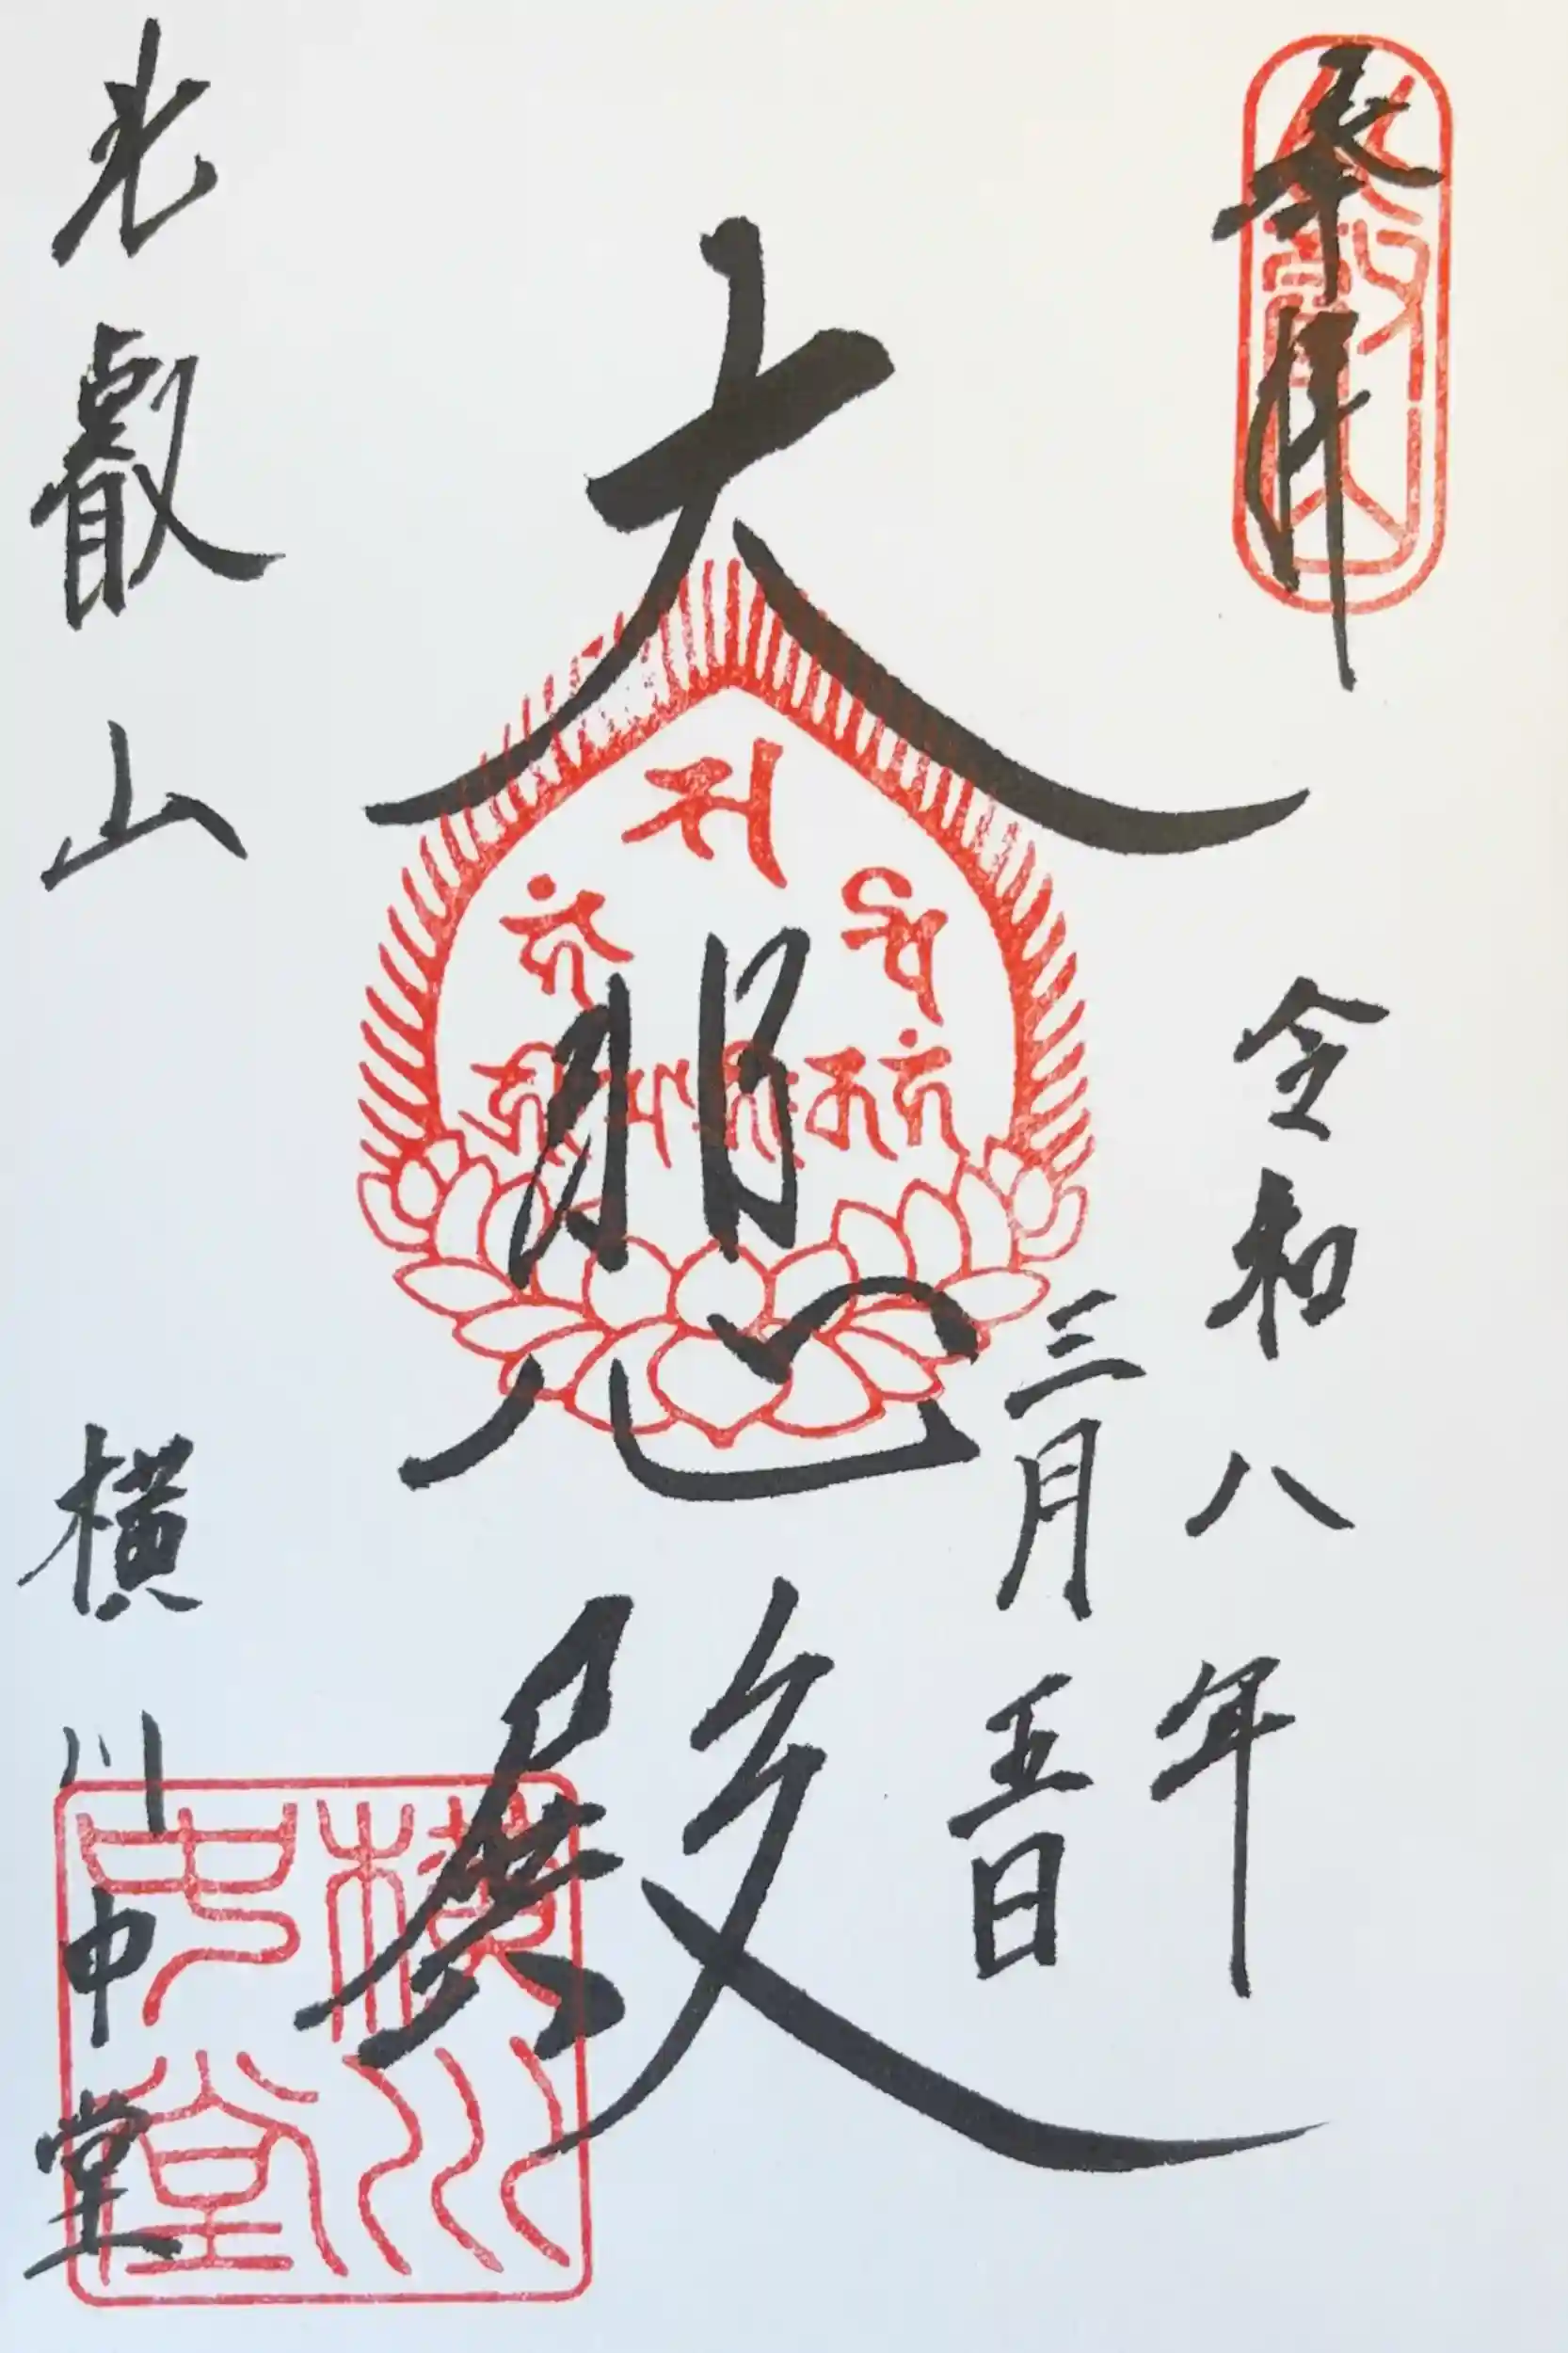 奉拝
令和八年
三月五日
大悲殿
比叡山 横川中堂
横川中堂